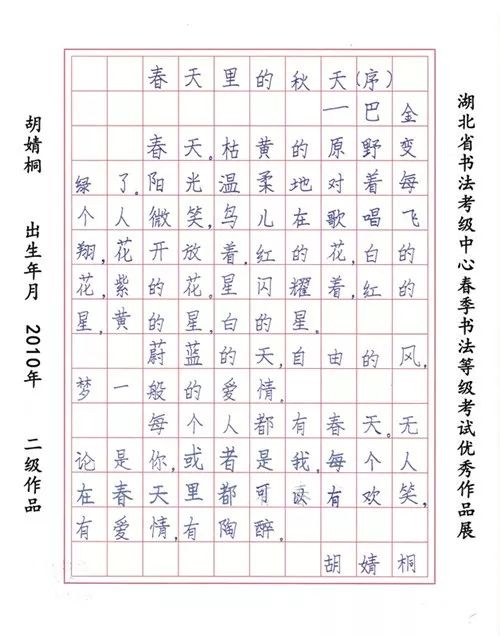 湖北省书法考级中心春季书法等级考试优秀作品展
春天里的秋天(序)
——巴金
春天。枯黄的原野变
绿了。阳光温柔地对着每
个人微笑,鸟儿在歌唱飞
翔,花开放着,红的花,白的
花,紫的花。星闪耀着,红的
星,黄的星,白的星。
蔚蓝的天,自由的风,
梦一般的爱情。
每个人都有春天。无
论是你,或者是我,每个人
在春天里都可以有欢笑,
有爱情,有陶醉。
胡婧桐
胡婧桐 出生年月 2010年 二级作品